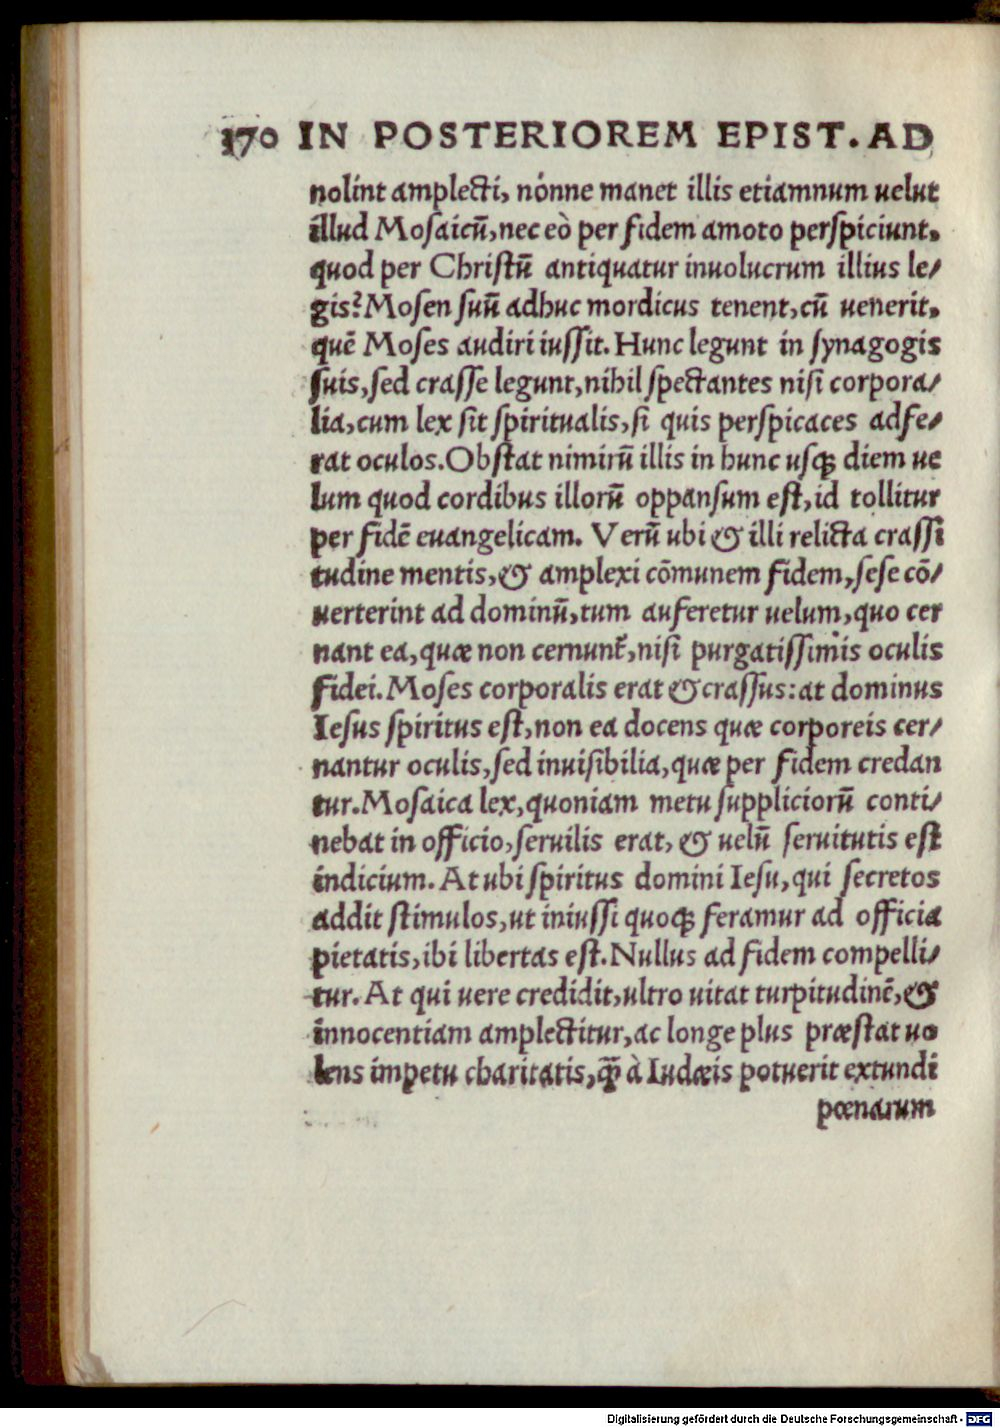 170 IN POSTERIOREM EPIST. AD
nolint amplecti, nónne manet illis etiamnum uelut
illud Moſaicũ, nec eò per fidem amoto perſpiciunt,
quod per Chriſtũ antiquatur inuolucrum illius le/
gis? Moſen ſuũ adhuc mordicus tenent, cũ uenerit,
quẽ Moſes audiri iuſſit. Hunc legunt in ſynagogis
ſuis, ſed craſſe legunt, nihil ſpectantes niſi corpora/
lia, cum lex ſit ſpiritualis, ſi quis perſpicaces adfe/
rat oculos. Obſtat nimirũ illis in hunc uſqꝫ diem ue
lum quod cordibus illorũ oppanſum eſt, id tollitur
per fidẽ euangelicam. Verũ ubi & illi relicta craſſi
tudine mentis, & amplexi cõmunem fidem, ſeſe cõ/
uerterint ad dominũ, tum auferetur uelum, quo cer
nant ea, quæ non cernunt᷑, niſi purgatiſſimis oculis
fidei. Moſes corporalis erat & craſſus: at dominus
Ieſus ſpiritus eſt, non ea docens quæ corporeis cer/
nantur oculis, ſed inuiſibilia, quæ per fidem credan
tur. Moſaica lex, quoniam metu ſuppliciorũ conti/
nebat in officio, ſeruilis erat, & uelũ ſeruitutis eſt
indicium. At ubi ſpiritus domini Ieſu, qui ſecretos
addit ſtimulos, ut iniuſſi quoqꝫ feramur ad officia
pietatis, ibi libertas eſt. Nullus ad fidem compelli/
tur. At qui uere credidit, ultro uitat turpitudinẽ, &
innocentiam amplectitur, ac longe plus præſtat uo
lens impetu charitatis, q̃ꝫ à Iudæis potuerit extundi
pœnarum
Digitalisierung gefördert durch die Deutsche Forschungsgemeinschaft - DFG